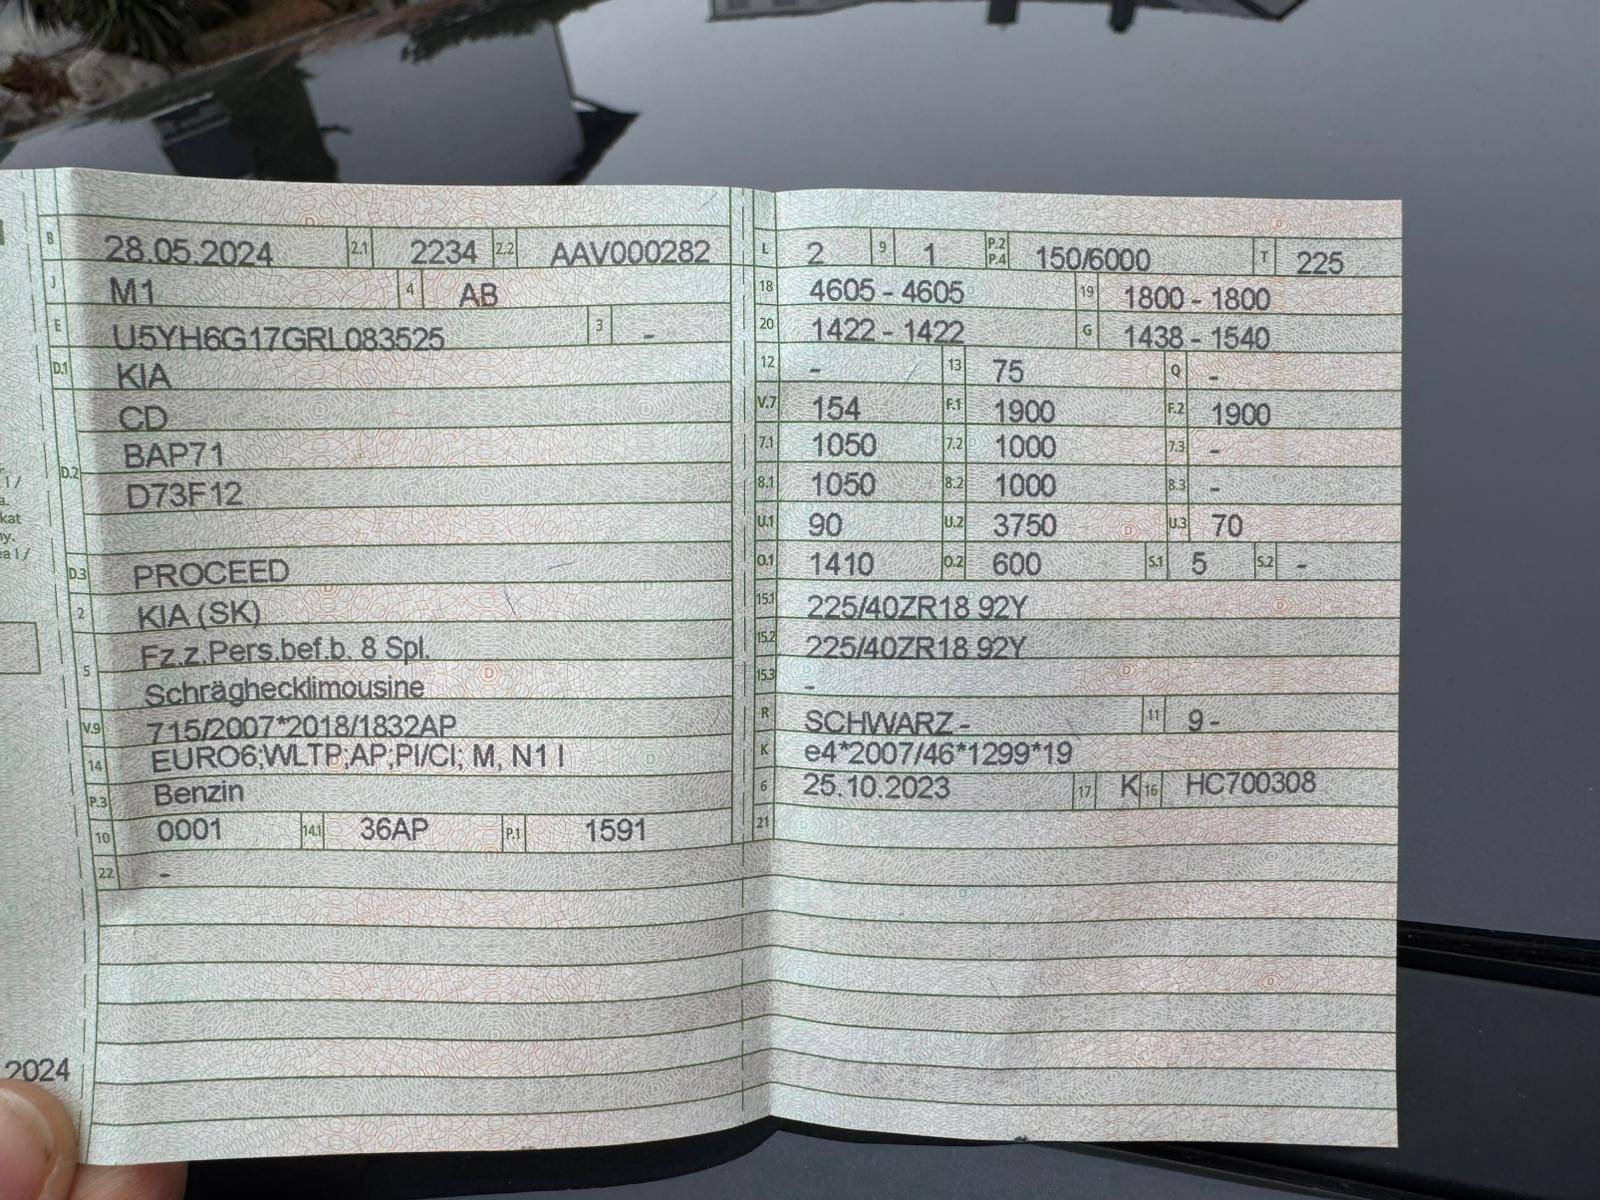 B 28.05.2024 2.1 2234 2.2 AAV000282
J M1 4 AB
E U5YH6G17GRL083525 3 -
D.1 KIA
CD
D.2 BAP71
D73F12
D.3 PROCEED
2 KIA (SK)
5 Fz.z.Pers.bef.b. 8 Spl.
Schräghecklimousine
V.9 715/2007*2018/1832AP
14 EURO6;WLTP;AP;PI/CI; M, N1 I
P.3 Benzin
10 0001 14.1 36AP P.1 1591
22 -
L 2 9 1 P.2 P.4 150/6000 T 225
18 4605 - 4605 19 1800 - 1800
20 1422 - 1422 G 1438 - 1540
12 - 13 75 Q -
V.7 154 F.1 1900 F.2 1900
7.1 1050 7.2 1000 7.3 -
8.1 1050 8.2 1000 8.3 -
U.1 90 U.2 3750 U.3 70
O.1 1410 O.2 600 S.1 5 S.2 -
15.1 225/40ZR18 92Y
15.2 225/40ZR18 92Y
15.3 -
R SCHWARZ - 11 9 -
K e4*2007/46*1299*19
6 25.10.2023 17 K 16 HC700308
21
kat
2024